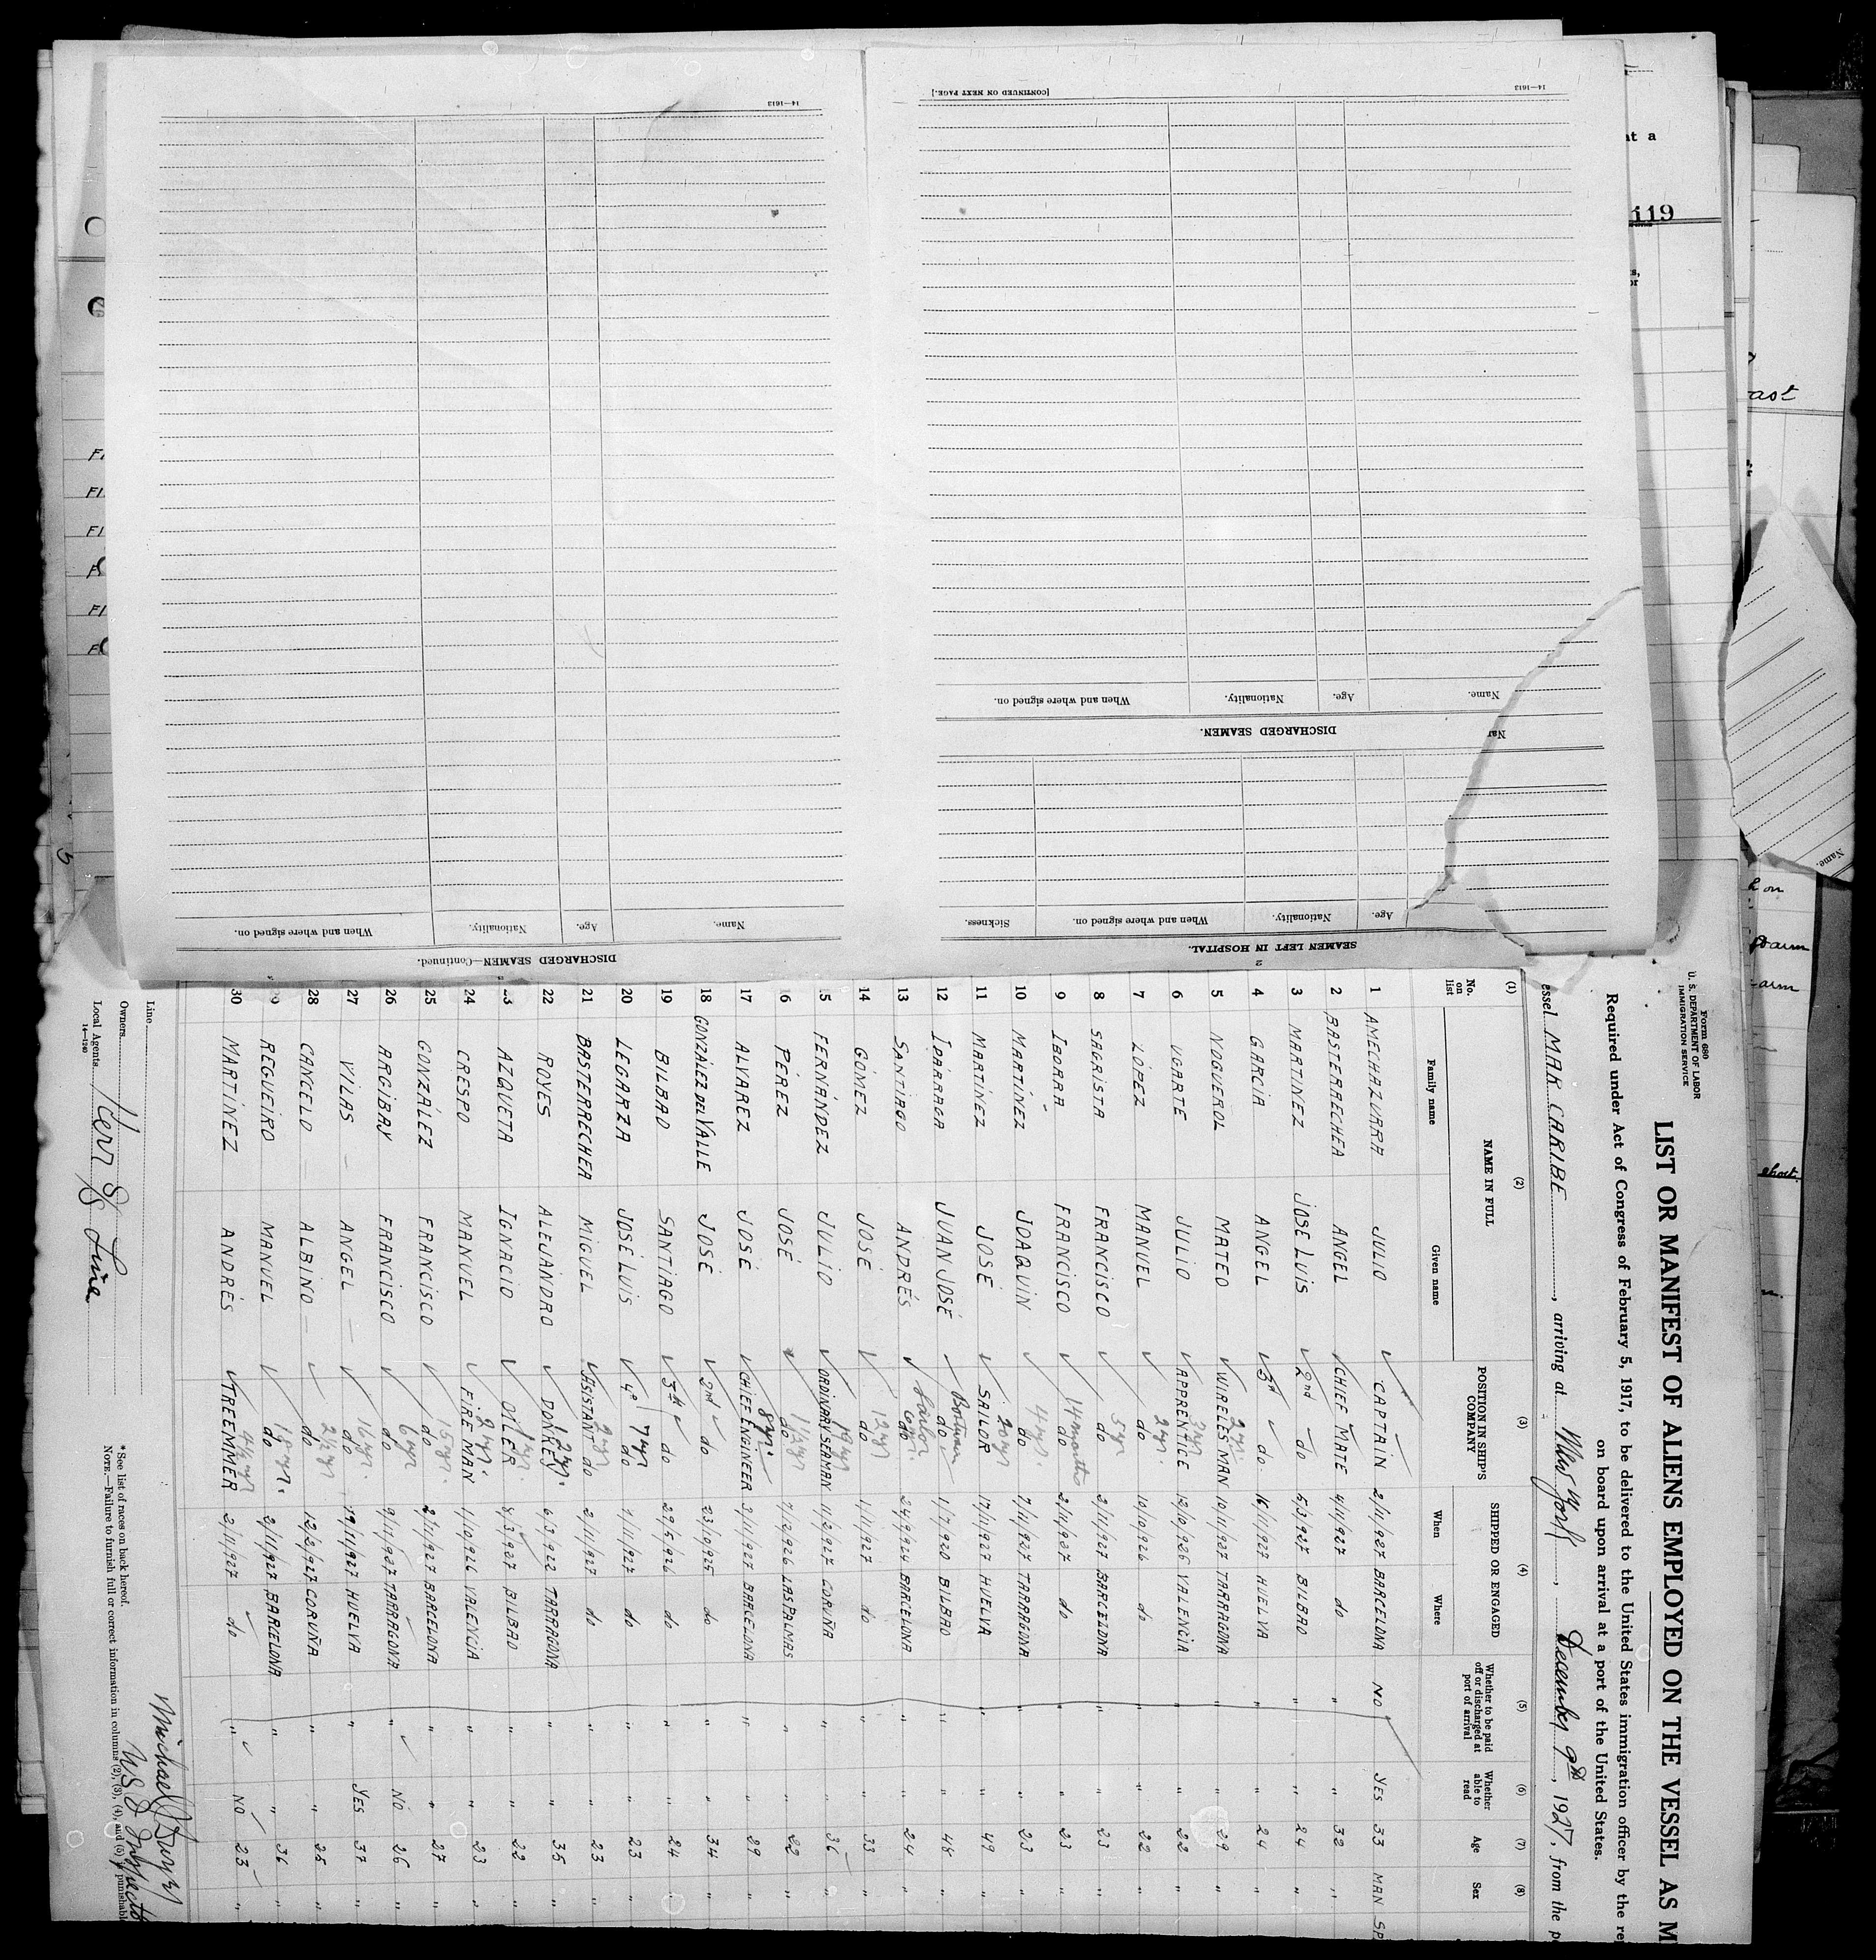 14—1613
[CONTINUED ON NEXT PAGE.]
14—1613
DISCHARGED SEAMEN.
Name. Age. Nationality. When and where signed on.
SEAMEN LEFT IN HOSPITAL.
2
Age. Nationality. When and where signed on. Sickness.
DISCHARGED SEAMEN—Continued.
Name. Age. Nationality. When and where signed on.
at a
119
Name.
Form 680
U. S. DEPARTMENT OF LABOR
IMMIGRATION SERVICE
LIST OR MANIFEST OF ALIENS EMPLOYED ON THE VESSEL AS M
Required under Act of Congress of February 5, 1917, to be delivered to the United States immigration officer by the re
on board upon arrival at a port of the United States.
essel MAR CARIBE, arriving at New York, December 9th, 1927, from the p
(1) (2) (3) (4) (5) (6) (7) (8)
No. on list NAME IN FULL POSITION IN SHIP'S COMPANY SHIPPED OR ENGAGED Whether to be paid off or discharged at port of arrival Whether able to read Age Sex
Family name Given name When Where
1 AMECHAZURRA JULIO CAPTAIN 2/11/927 BARCELONA NO YES 33 MAN SP
2 BASTERRECHEA ANGEL CHIEF MATE 4/11/927 do " " 32 "
3 MARTINEZ JOSE LUIS 2nd do 5/3/927 BILBAO " " 24 "
4 GARCIA ANGEL 3d do 16/11/927 HUELVA " " 24 "
5 NOGUEROL MATEO WIRELES MAN 10/11/927 TARRAGONA " " 29 "
6 UGARTE JULIO APPRENTICE 12/10/926 VALENCIA " " 22 "
7 LÓPEZ MANUEL do 2 yr 10/10/926 do " " 22 "
8 SAGRISTA FRANCISCO do 5 yr 2/11/927 BARCELONA " " 23 "
9 IBORRA FRANCISCO do 14 months 2/11/927 do " " 23 "
10 MARTÍNEZ JOAQUIN do 7/11/927 TARRAGONA " " 23 "
11 MARTÍNEZ JOSÉ SAILOR 20 yr 17/11/927 HUELVA " " 49 "
12 IPARRAGA JUAN JOSÉ do Boatswain 1/7/920 BILBAO " " 48 "
13 SANTIAGO ANDRÉS do Sailor 24/9/924 BARCELONA " " 24 "
14 GÓMEZ JOSÉ do 12 yr 1/11/927 do " " 33 "
15 FERNÁNDEZ JULIO ORDINARY SEAMAN 11/2/927 CORUÑA " " 36 "
16 PÉREZ JOSÉ do 7/12/926 LAS PALMAS " " 22 "
17 ALVAREZ JOSÉ CHIEF ENGINEER 8 yr. 3/11/927 BARCELONA " " 29 "
18 GONZÁLEZ DEL VALLE JOSÉ 2nd do 23/10/925 do " " 34 "
19 BILBAO SANTIAGO 3th do 29/5/926 do " " 24 "
20 LEGARZA JOSÉ LUIS 4º do 7 yr 7/11/927 do " " 23 "
21 BASTERRECHEA MIGUEL ASISTANT do 2/11/927 do " " 23 "
22 ROYES ALEJANDRO DONKEY 12 yr. 6/3/922 TARRAGONA " " 35 "
23 AZQUETA IGNACIO OILER 8/3/927 BILBAO " " 22 "
24 CRESPO MANUEL FIRE MAN 1/10/926 VALENCIA " " 23 "
25 GONZÁLEZ FRANCISCO do 15 yr. 2/11/927 BARCELONA " " 27 "
26 ARGIBAY FRANCISCO do 6 yr 9/11/927 TARRAGONA " NO 26 "
27 VILAS ANGEL do 16 yr. 19/11/927 HUELVA " YES 37 "
28 CANCELO ALBINO do 2½ yr 12/2/927 CORUÑA " " 25 "
29 REGUEIRO MANUEL do 18 yr. 2/11/927 BARCELONA " " 36 "
30 MARTÍNEZ ANDRÉS TREEMMER 4½ yr 2/11/927 do " NO 23 "
Line
Owners
Local Agents Kerr SS Line
14—1240
* See list of races on back hereof.
NOTE.—Failure to furnish full or correct information in columns (2), (3), (4), and (5) is punishable
U S I Inspector